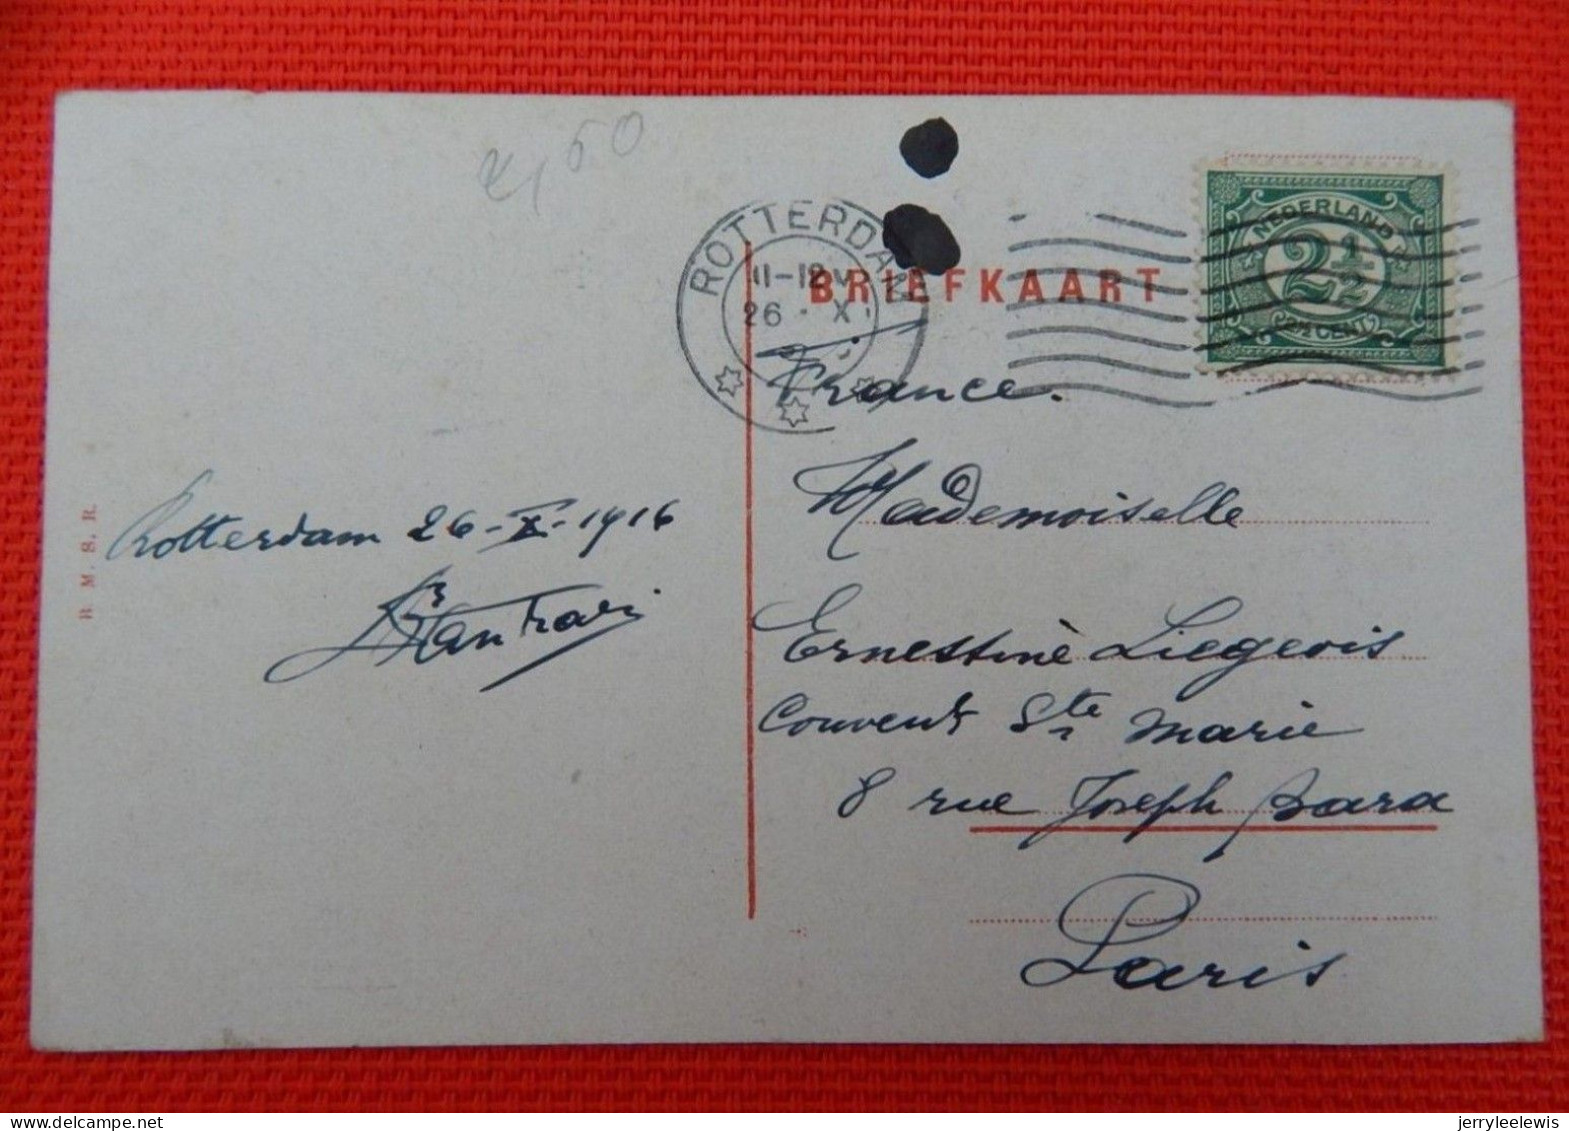 2,50
ROTTERDAM
11-12 V
26 . X.
BRIEFKAART
NEDERLAND
2 1/2
2½ CENT
France.
Mademoiselle
Ernestine Liegeois
Couvent Ste Marie
8 rue Joseph Bara
Paris
Rotterdam 26-X-1916
B. M. S. R.
jerryleelewis